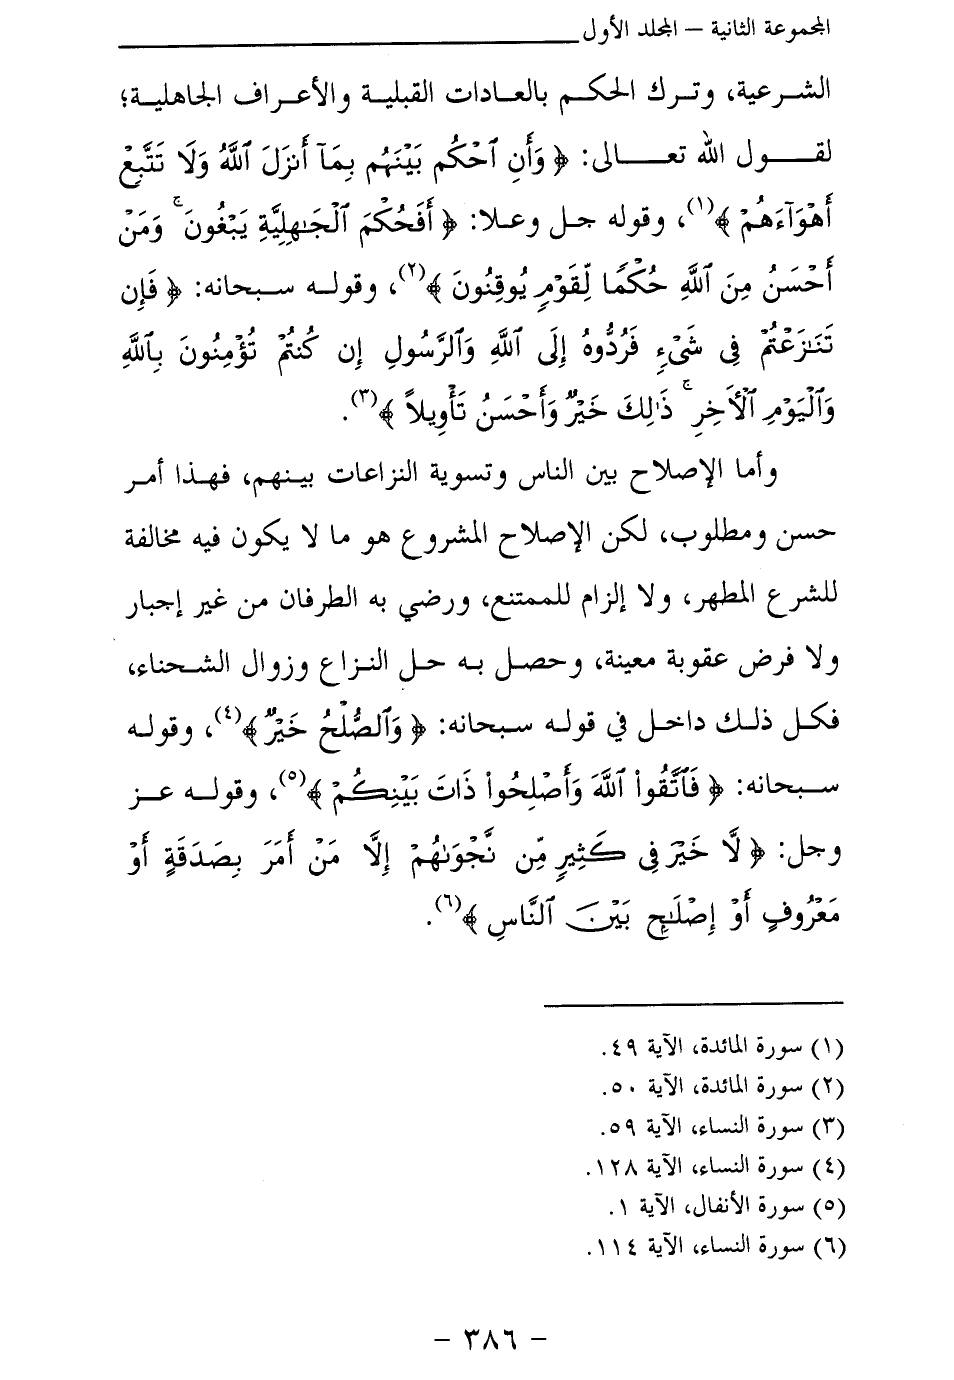 المجموعة الثانية – المجلد الأول
الشرعية، وترك الحكم بالعادات القبلية والأعراف الجاهلية؛
لقول الله تعالى: ﴿ وَأَنِ ٱحْكُم بَيْنَهُم بِمَآ أَنزَلَ ٱللَّهُ وَلَا تَتَّبِعْ
أَهْوَآءَهُمْ ﴾(١)، وقوله جل وعلا: ﴿ أَفَحُكْمَ ٱلْجَـٰهِلِيَّةِ يَبْغُونَ ۚ وَمَنْ
أَحْسَنُ مِنَ ٱللَّهِ حُكْمًا لِّقَوْمٍ يُوقِنُونَ ﴾(٢)، وقوله سبحانه: ﴿ فَإِن
تَنَـٰزَعْتُمْ فِى شَىْءٍ فَرُدُّوهُ إِلَى ٱللَّهِ وَٱلرَّسُولِ إِن كُنتُمْ تُؤْمِنُونَ بِٱللَّهِ
وَٱلْيَوْمِ ٱلْأَخِرِ ۚ ذَٰلِكَ خَيْرٌ وَأَحْسَنُ تَأْوِيلاً ﴾(٣).
وأما الإصلاح بين الناس وتسوية النزاعات بينهم، فهذا أمر
حسن ومطلوب، لكن الإصلاح المشروع هو ما لا يكون فيه مخالفة
للشرع المطهر، ولا إلزام للممتنع، ورضي به الطرفان من غير إجبار
ولا فرض عقوبة معينة، وحصل به حل النزاع وزوال الشحناء،
فكل ذلك داخل في قوله سبحانه: ﴿ وَٱلصُّلْحُ خَيْرٌ ﴾(٤)، وقوله
سبحانه: ﴿ فَٱتَّقُوا۟ ٱللَّهَ وَأَصْلِحُوا۟ ذَاتَ بَيْنِكُمْ ﴾(٥)، وقوله عز
وجل: ﴿ لَّا خَيْرَ فِى كَثِيرٍ مِّن نَّجْوَىٰهُمْ إِلَّا مَنْ أَمَرَ بِصَدَقَةٍ أَوْ
مَعْرُوفٍ أَوْ إِصْلَـٰحٍۭ بَيْنَ ٱلنَّاسِ ﴾(٦).
(١) سورة المائدة، الآية ٤٩.
(٢) سورة المائدة، الآية ٥٠.
(٣) سورة النساء، الآية ٥٩.
(٤) سورة النساء، الآية ١٢٨.
(٥) سورة الأنفال، الآية ١.
(٦) سورة النساء، الآية ١١٤.
– ٣٨٦ –